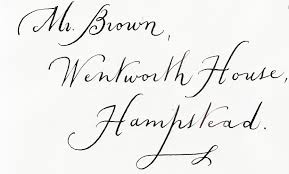 Mr. Brown,
Wentworth House,
Hampstead.